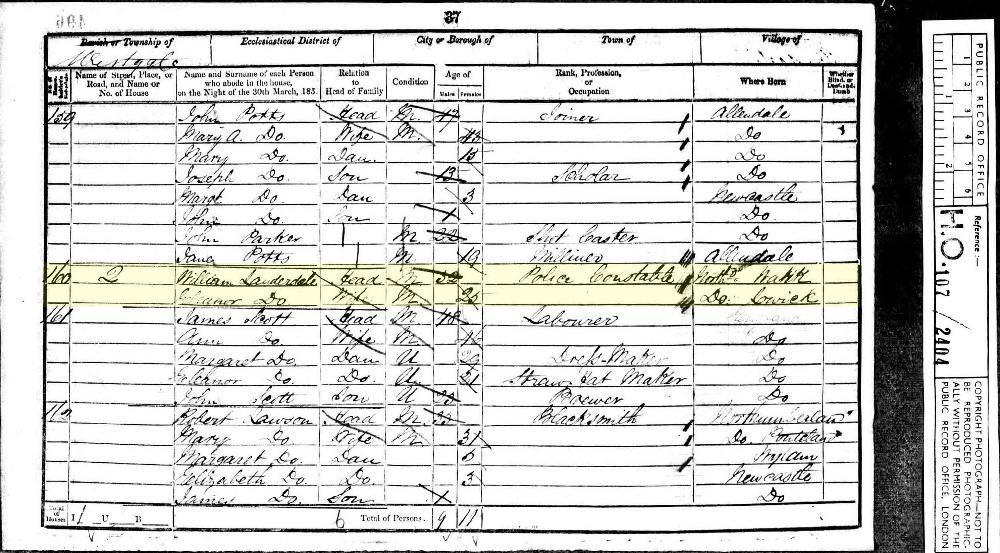 37
Parish or Township of Ecclesiastical District of City or Borough of Town of Village of
Westgate
Name of Street, Place, or Road, and Name or No. of House
Name and Surname of each Person who abode in the house, on the Night of the 30th March, 185
Relation to Head of Family
Condition
Age of
Males Females
Rank, Profession, or Occupation
Where Born
Whether Blind, or Deaf-and-Dumb
159 John Potts Head M. 47 Joiner Allendale
Mary A. Do Wife M. 43 Do
Mary Do. Dau. 15 Do
Joseph Do. Son 13 Scholar Do
Margt Do. Dau 3 Newcastle
John Do. Son 1 Do.
John Parker M. 22 Do
Jane Potts M. 19 Milliner Allendale
160 2 William Lauderdale Head M. 32 Police Constable Northd.
Eleanor Do Wife M. 25 Do. Lowick
161 James Scott Head M. 48 Labourer
Ann Do. Wife M. 46 Do
Margaret Do. Dau U Dress Maker Do
Eleanor Do. Do. U 21 Straw Hat Maker Do
John Scott Son U 23 Brewer Do
162 Robert Lawson Head M. 33 Blacksmith Northumberland
Mary Do Wife M. 31 Do.
Margaret Do. Dau 5
Elizabeth Do. Do 3 Newcastle
James Do. Son 1 Do
Total of Houses U B Total of Persons 9 11
PUBLIC RECORD OFFICE
1 2 3 4 5 6
Reference:—
H.O. 107 / 2404
COPYRIGHT PHOTOGRAPH—NOT TO BE REPRODUCED PHOTOGRAPHICALLY WITHOUT PERMISSION OF THE PUBLIC RECORD OFFICE, LONDON